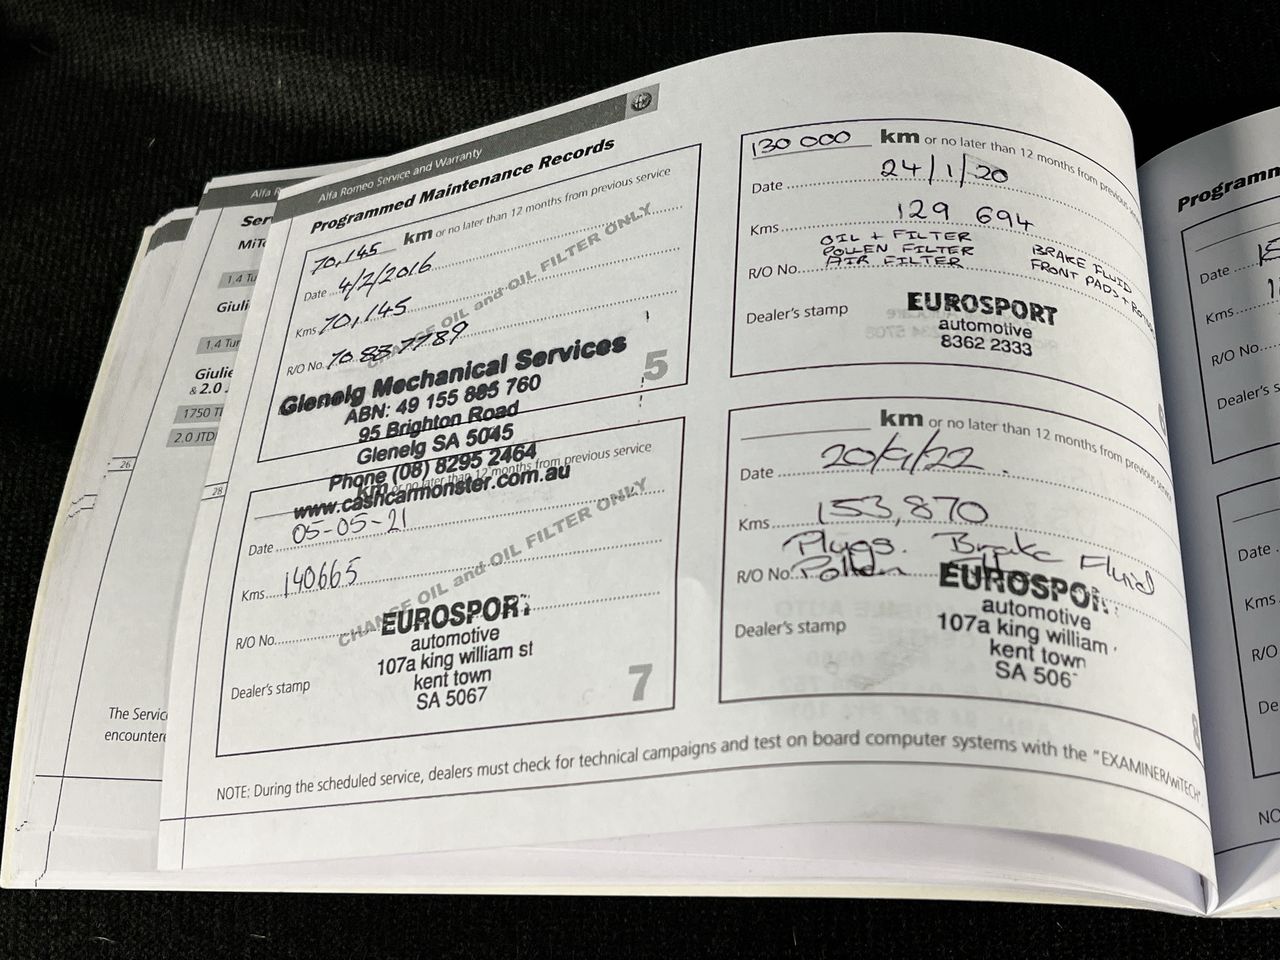 Alfa Romeo Service and Warranty
Programmed Maintenance Records
70,145 km or no later than 12 months from previous service
Date 4/2/2016
Kms 70,145
R/O No.
CHANGE OIL and OIL FILTER ONLY
Glenelg Mechanical Services
ABN: 49 155 885 760
95 Brighton Road
Glenelg SA 5045
Phone (08) 8295 2464
www.cashcarmonster.com.au
5
130 000 km or no later than 12 months from previous
Date 24/1/20
Kms 129 694
OIL + FILTER
POLLEN FILTER
AIR FILTER
BRAKE FLUID
FRONT PADS +
R/O No.
Dealer's stamp
EUROSPORT
automotive
8362 2333
km or no later than 12 months from previous service
Date 05-05-21
Kms 140665
R/O No.
CHANGE OIL and OIL FILTER ONLY
Dealer's stamp
EUROSPORT
automotive
107a king william st
kent town
SA 5067
7
km or no later than 12 months from previous
Date
Kms 153,870
Plugs. Brake Fluid
R/O No. Pollen
Dealer's stamp
EUROSPO
automotive
107a king william
kent town
SA 506
8
NOTE: During the scheduled service, dealers must check for technical campaigns and test on board computer systems with the "EXAMINER/wiTECH"
Alfa R
Ser
MiTo
1.4 Tu
Giulie
1.4 Tur
Giulie
& 2.0
1750 T
2.0 JTD
26
28
The Servic
encountere
Programm
Date
Kms
R/O No.
Dealer's s
Date
Kms
R/O
De
NO